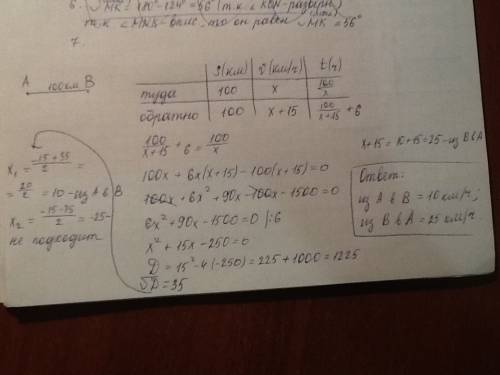 6. ∪MK = 180°-124° = 56° (т.к ∠KON-разверн)
т.к ∠MNK-впис, то он равен ∪MK = 56°
7.
A 100км B
S(км) v(км/ч) t(ч)
туда 100 x 100/x
обратно 100 x+15 100/(x+15) + 6
100/(x+15) + 6 = 100/x
x+15 = 10+15 = 25 - из B в A
100x + 6x(x+15) - 100(x+15) = 0
100x + 6x² + 90x - 100x - 1500 = 0
6x² + 90x - 1500 = 0 |:6
x² + 15x - 250 = 0
D = 15² - 4(-250) = 225 + 1000 = 1225
√D = 35
x₁ = (-15+35)/2 =
= 20/2 = 10 - из A в B
x₂ = (-15-35)/2 = -25 -
не подходит
Ответ:
из A в B = 10 км/ч;
из B в A = 25 км/ч.